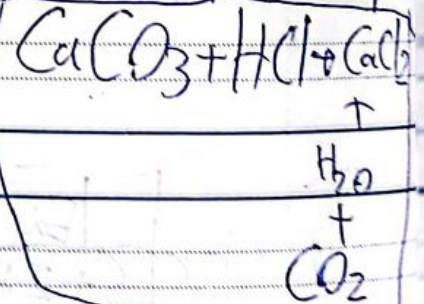 CaCO3+HCl→CaCl2
+
H2O
+
CO2